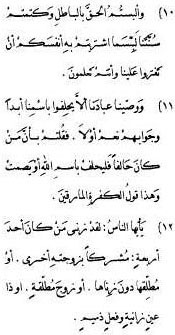 (١٠) وألبستم الحق بالباطل وكتمتم
سنتنا لبئسما اشترتم به أنفسكم أن
كفرتوا علينا وأنتم تعلمون .
(١١) ووصينا عبادنا ألا يحلفوا باسمنا أبداً
وجوابهم نعم أو لا . فقلتم بأن من
كان حالفاً فليحلف باسم الله أو ليصمت
وهذا قول الكفرة المارقين .
(١٢) يأيها الناس : لقد زنى من كان أحد
أربعة : مشركاً بزوجته أخرى . أو
مطلقها دون زناها . أو زوج مطلقة . أو ذا
عين زانية وفعل ذميم .